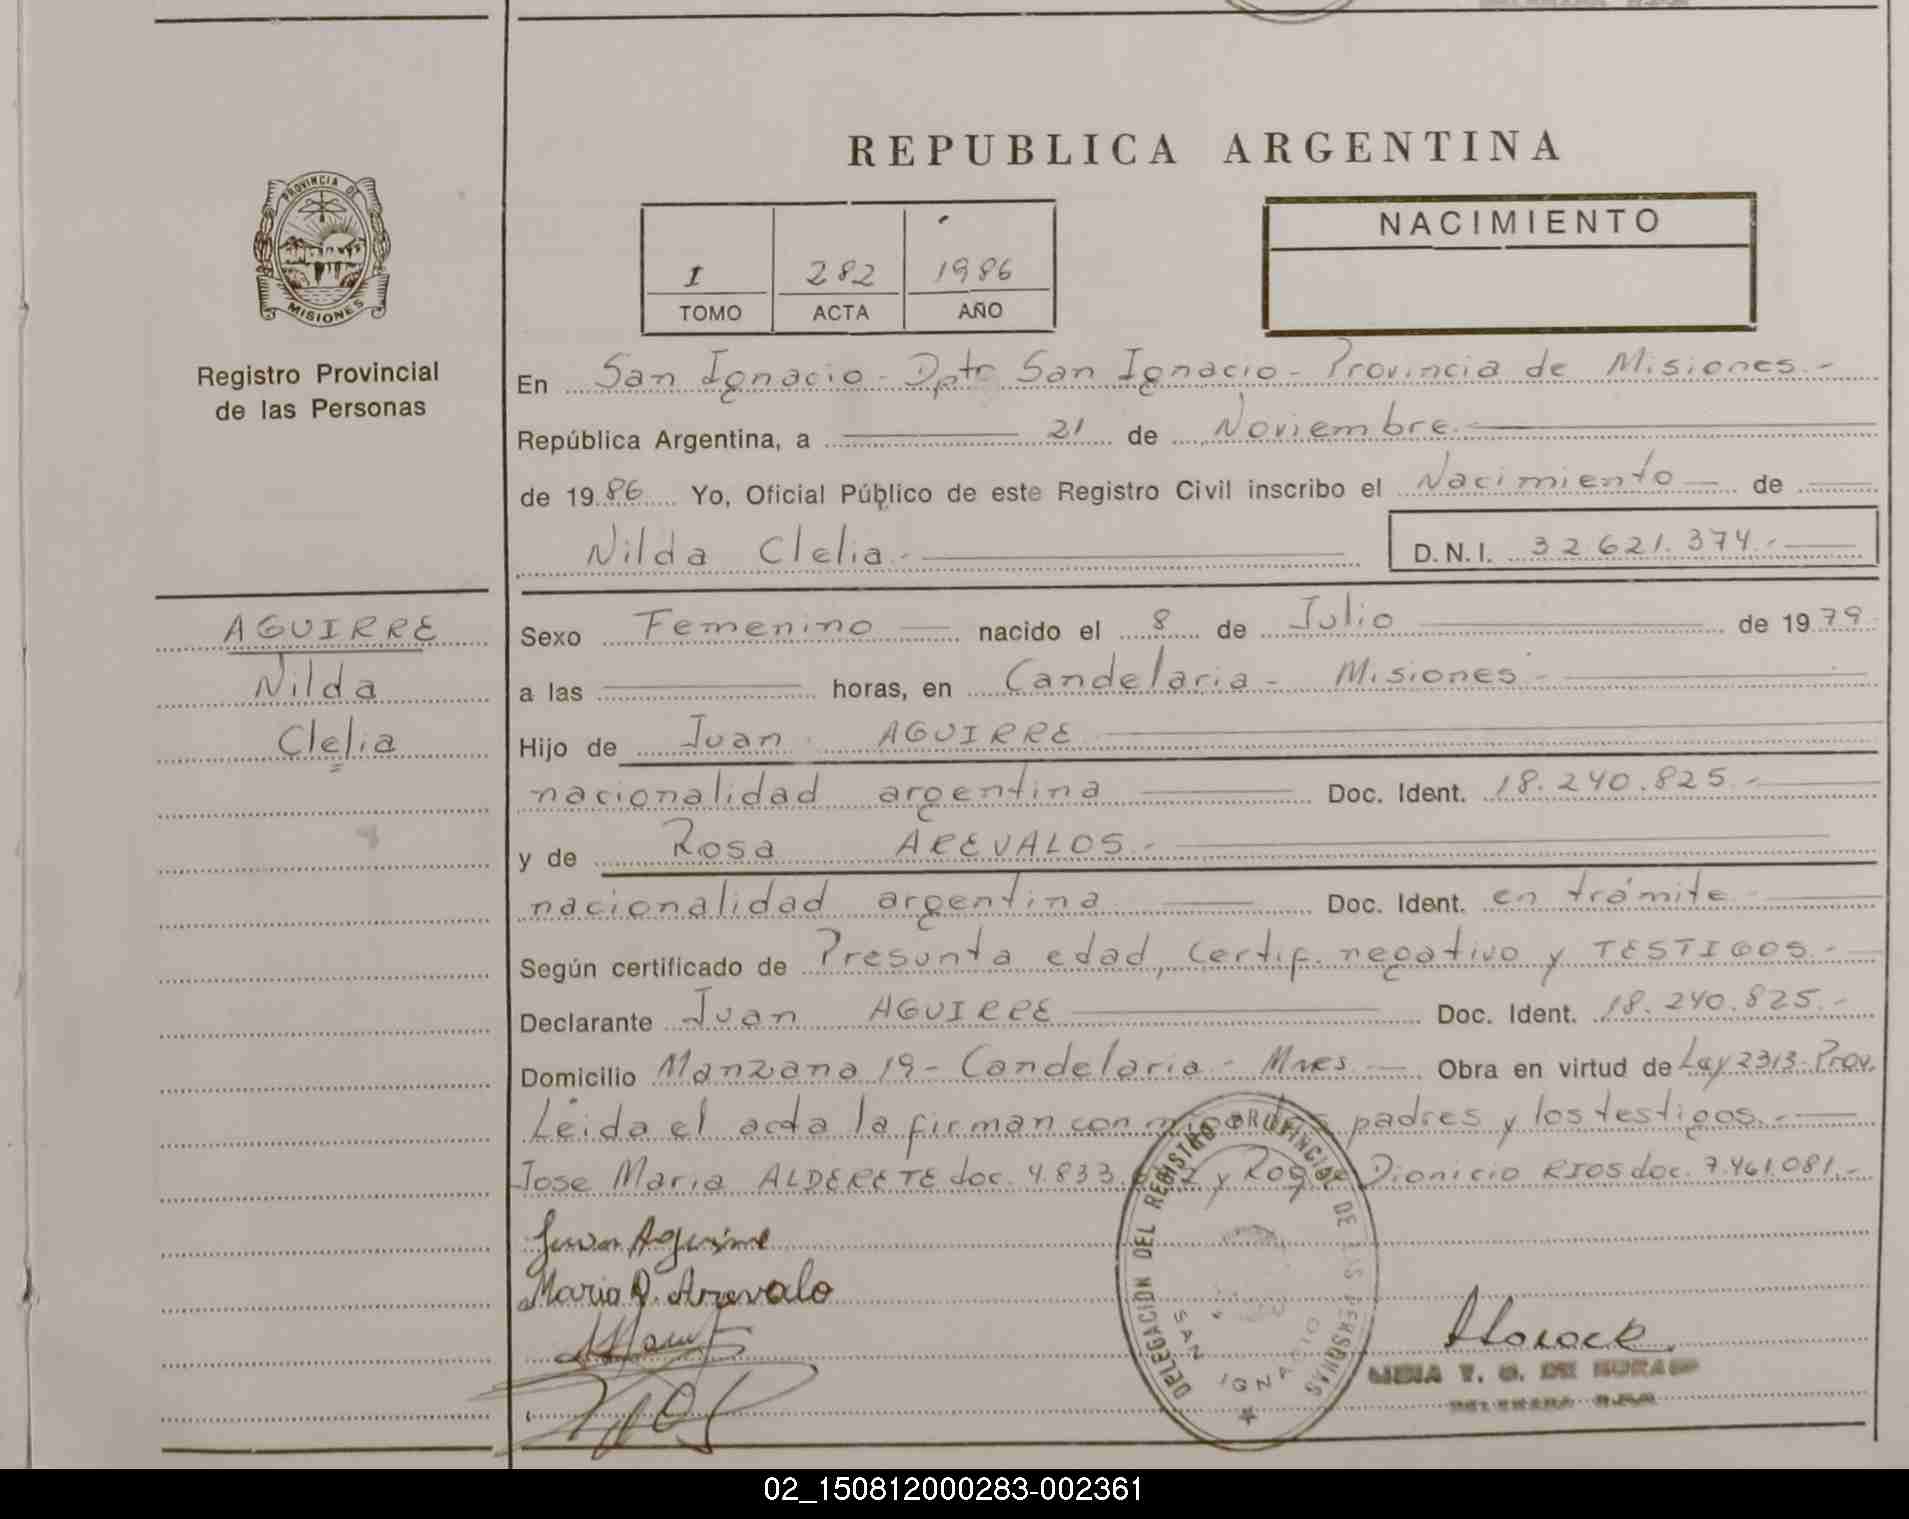 REPUBLICA ARGENTINA
PROVINCIA DE
MISIONES
Registro Provincial
de las Personas
I 282 1986
TOMO ACTA AÑO
NACIMIENTO
En San Ignacio - Dpto San Ignacio - Provincia de Misiones.-
República Argentina, a 21 de Noviembre
de 1986 Yo, Oficial Público de este Registro Civil inscribo el Nacimiento de
Nilda Clelia.-
D.N.I. 32621.374.-
AGUIRRE
Nilda
Clelia
Sexo Femenino nacido el 8 de Julio de 1979
a las horas, en Candelaria - Misiones -
Hijo de Juan AGUIRRE
nacionalidad argentina Doc. Ident. 18.240.825.-
y de Rosa AREVALOS.-
nacionalidad argentina Doc. Ident. en trámite
Según certificado de Presunta edad, certif. negativo y TESTIGOS.-
Declarante Juan AGUIRRE Doc. Ident. 18.240.825.-
Domicilio Manzana 19 - Candelaria - Mnes Obra en virtud de Ley 2313-Prov.
Leida el acta la firman con padres y los testigos.-
Jose Maria ALDERETE doc. 4.833. y Roque Dionicio RIOS doc. 7.461.081.-
Juan Aguirre
Maria R. Arevalo
DELEGACION DEL REGISTRO PROVINCIAL DE LAS PERSONAS
SAN IGNACIO
02_150812000283-002361